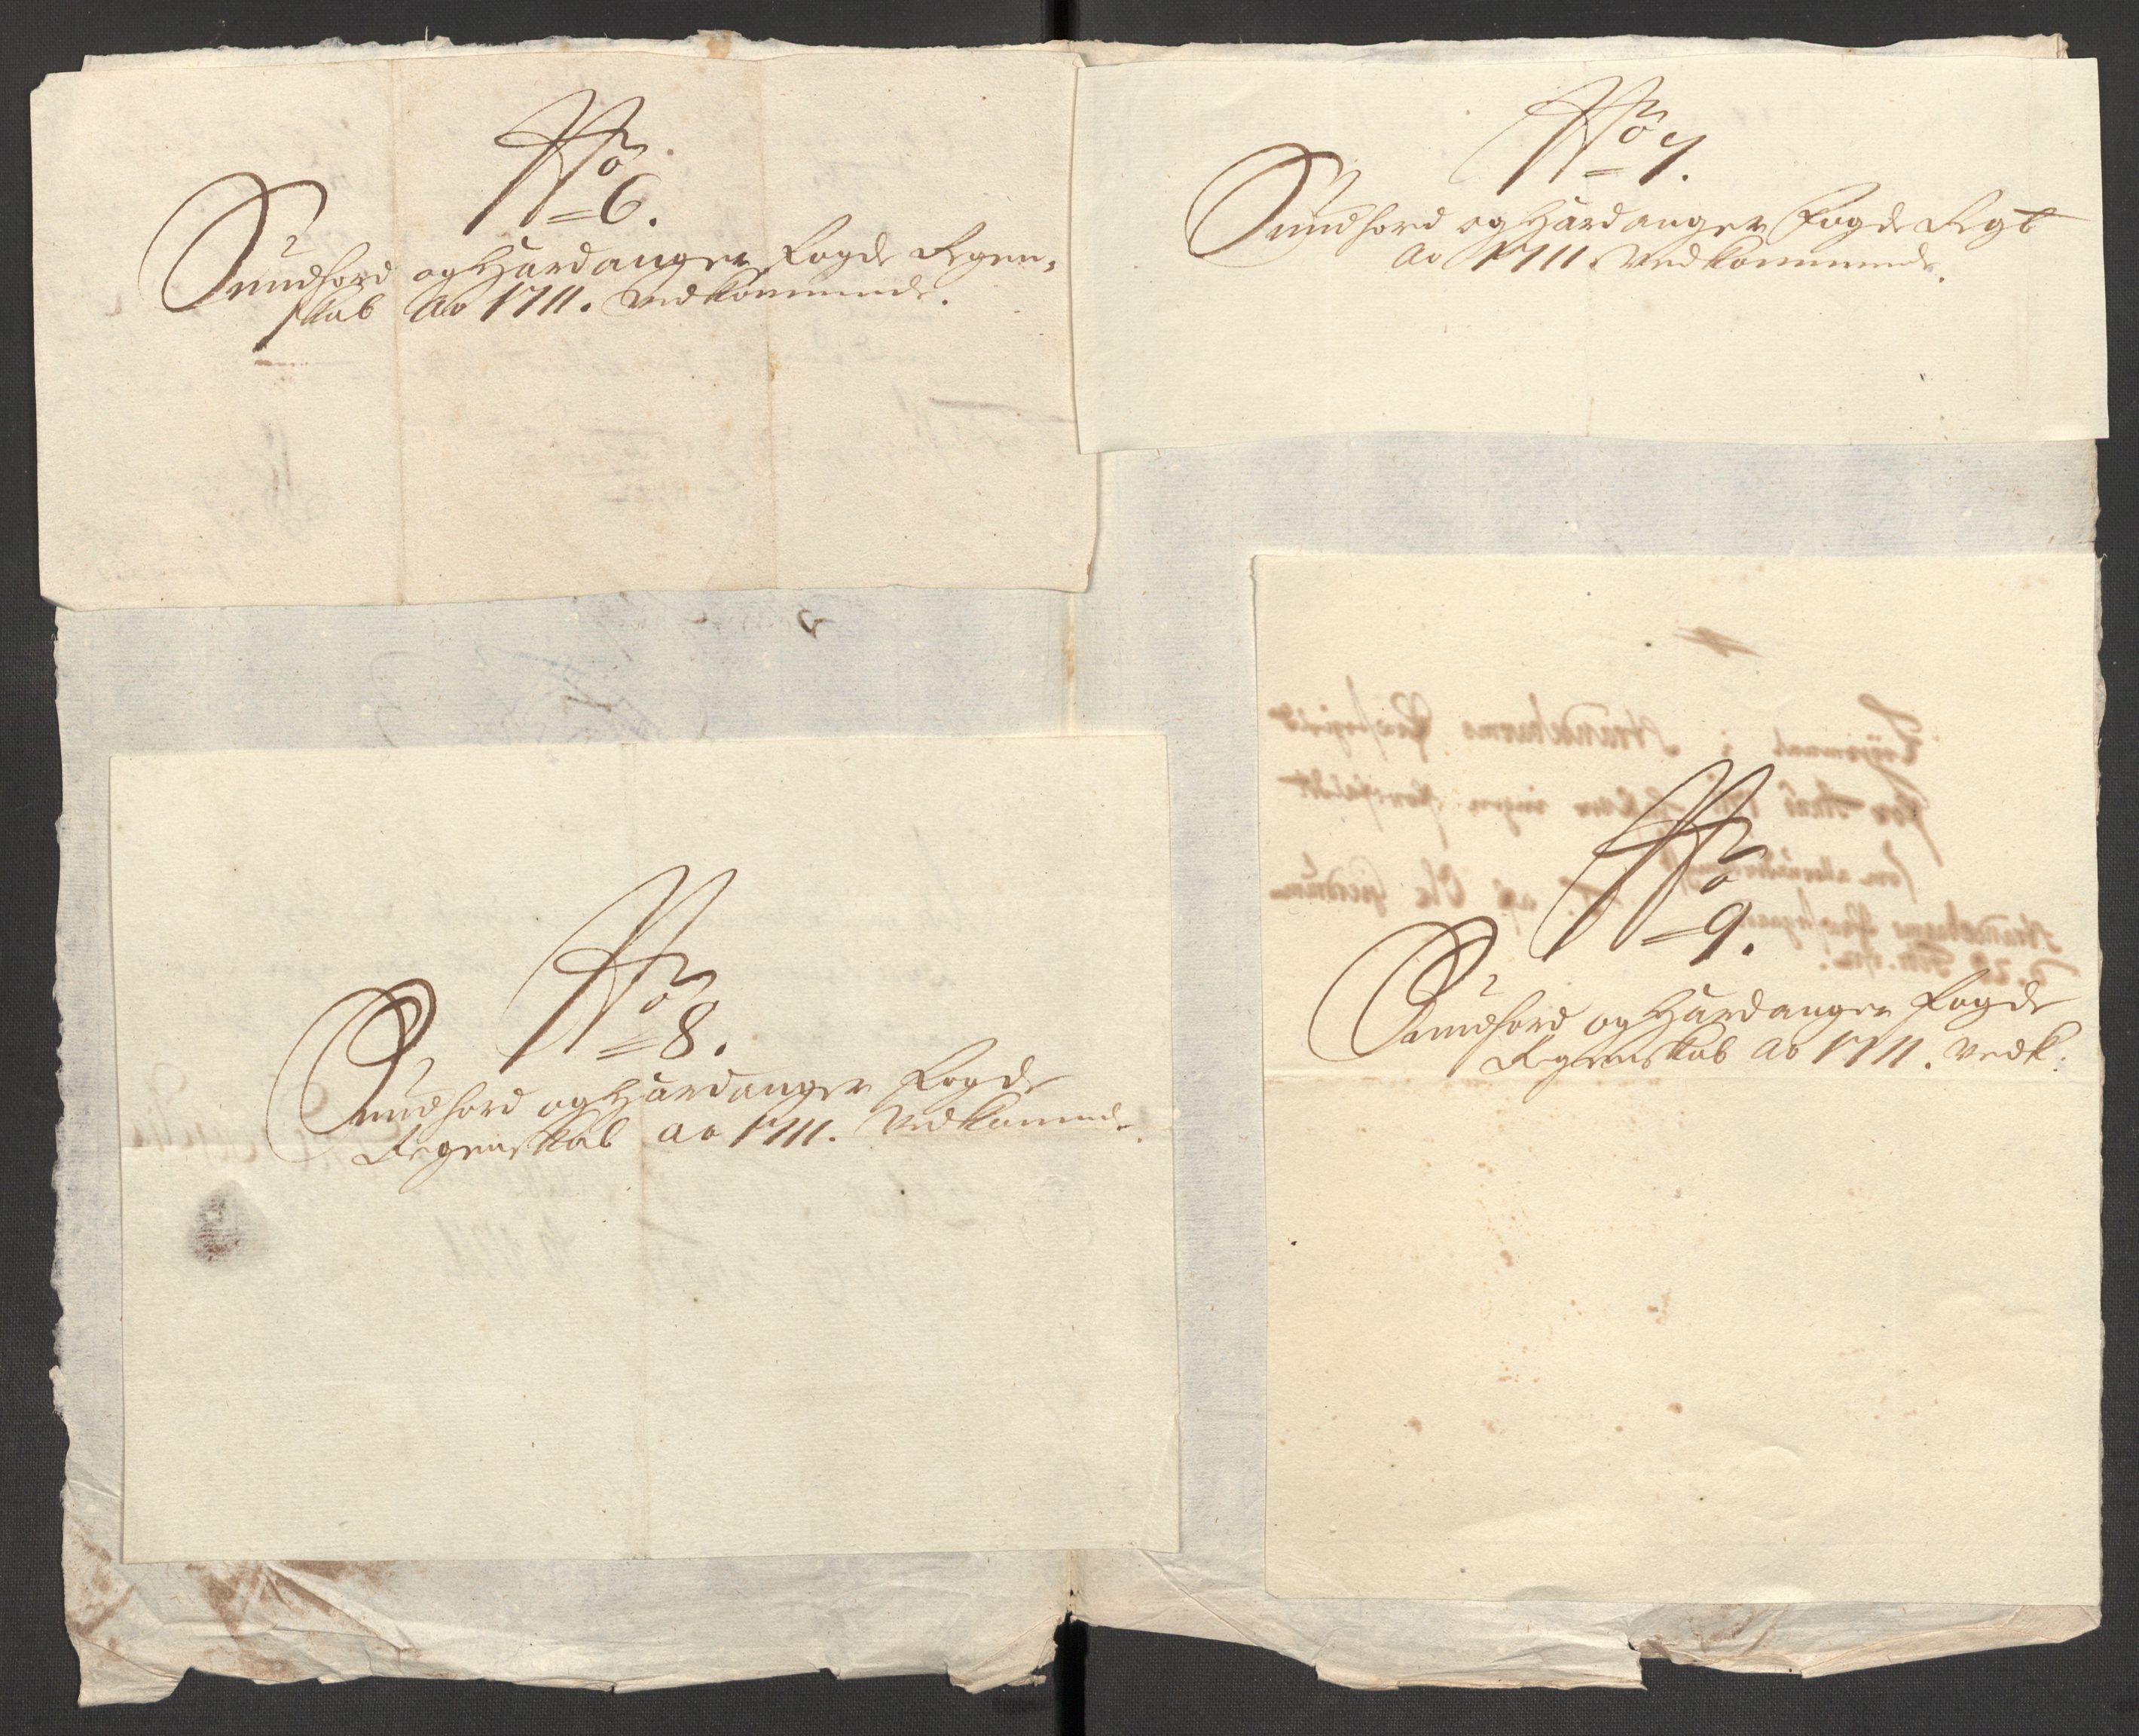 No 6.
Sundhord og Hardanger Fogde Regen-
skab Ao 1711. Vedkommende.
No 7.
Sundhord og Hardanger Fogde Regb
Ao 1711 Vedkommende.
No 8.
Sundhord og Hardanger Fogde
Regenskab Ao 1711. Vedkommende.
No 9.
Sundhord og Hardanger Fogde
Regenskab Ao 1711. Vedk: